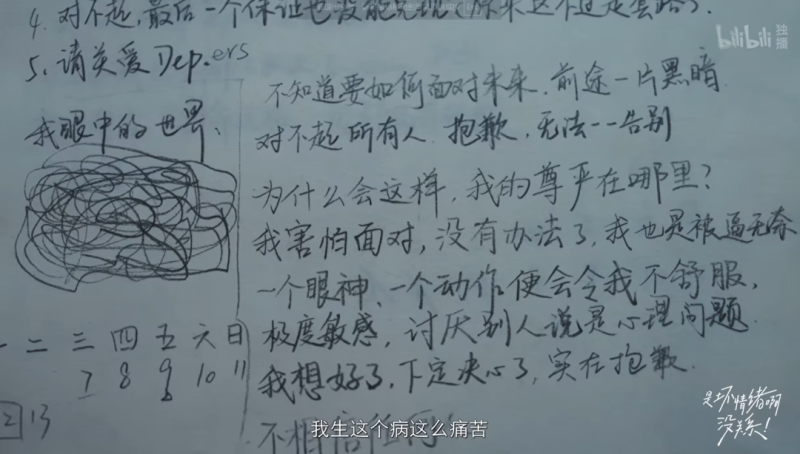 4. 对不起,最后一个保证也没能兑现(原来这不过是套路).
5. 请关爱 Dep.ers
我眼中的世界:
一 二 三 四 五 六 日
7 8 9 10 11
12 13
不知道要如何面对未来.前途一片黑暗
对不起所有人.抱歉,无法一一告别
为什么会这样,我的尊严在哪里?
我害怕面对,没有办法了,我也是被逼无奈
一个眼神、一个动作便会令我不舒服,
极度敏感,讨厌别人说是心理问题.
我想好了,下定决心了,实在抱歉.
不相信任何
我生这个病这么痛苦
bilibili 独播
是坏情绪啊
没关系!